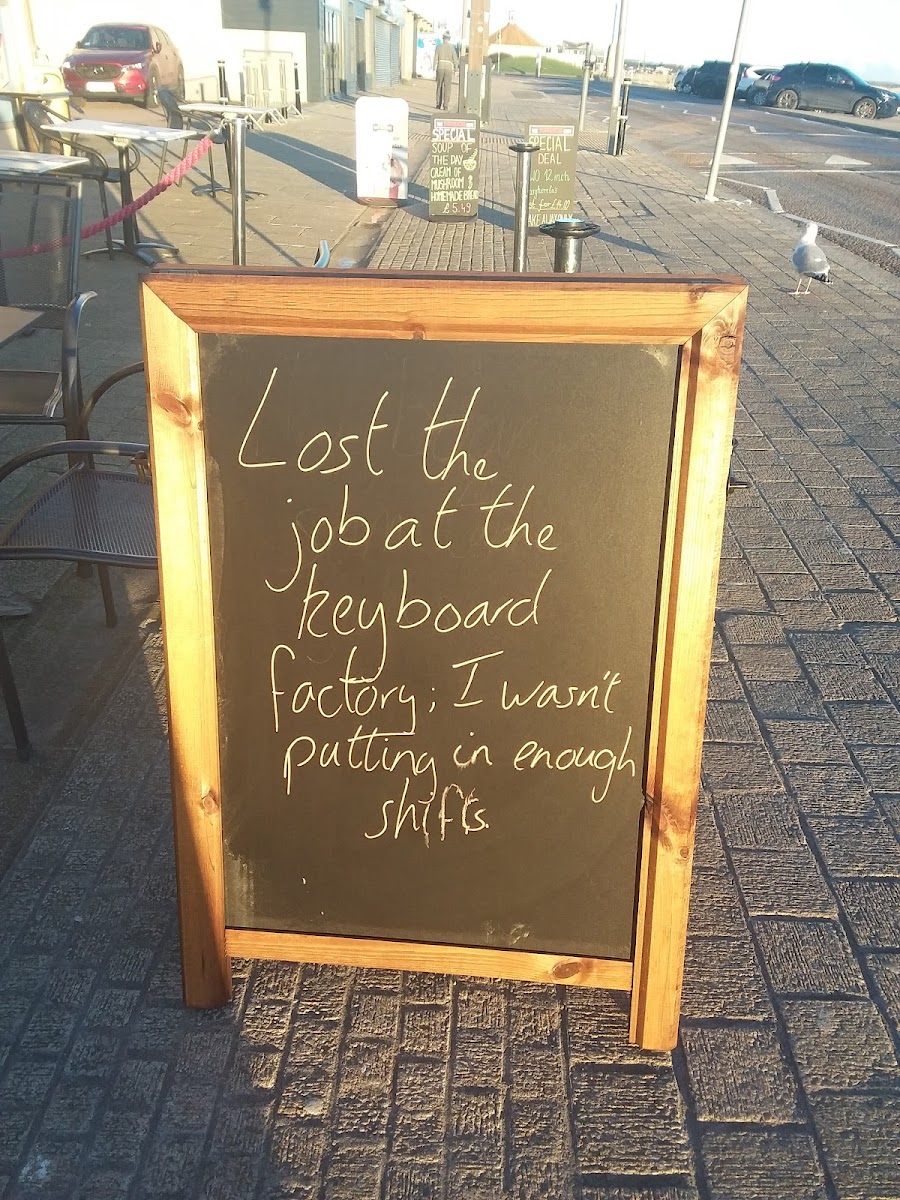 SPECIAL
SOUP OF
THE DAY
CREAM OF
MUSHROOM &
HOMEMADE BREAD
£5.49
SPECIAL
DEAL
12 inch
for £14.10
TAKEAWAY
Lost the
job at the
keyboard
factory; I wasn't
putting in enough
shifts.